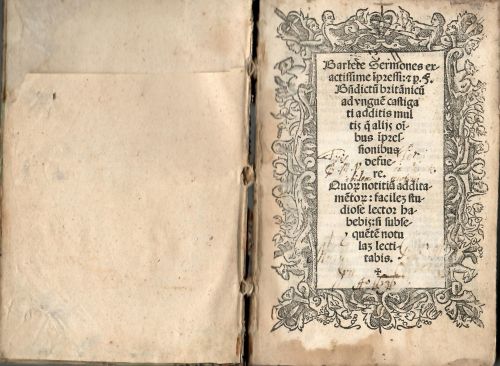 Barlete Sermones ex-
actissime īpressi: ⁊ p. F.
Bn̄dictū britānicū
ad vnguē castiga
ti additis mul
tis q̄ alijs oī-
bus īpres-
sionibus
defue-
re.
Quoꝝ notitiā addita-
mētoꝝ: facileʒ stu-
diose lector ha-
bebis: si subse-
quētē notu
laʒ lecti
tabis.